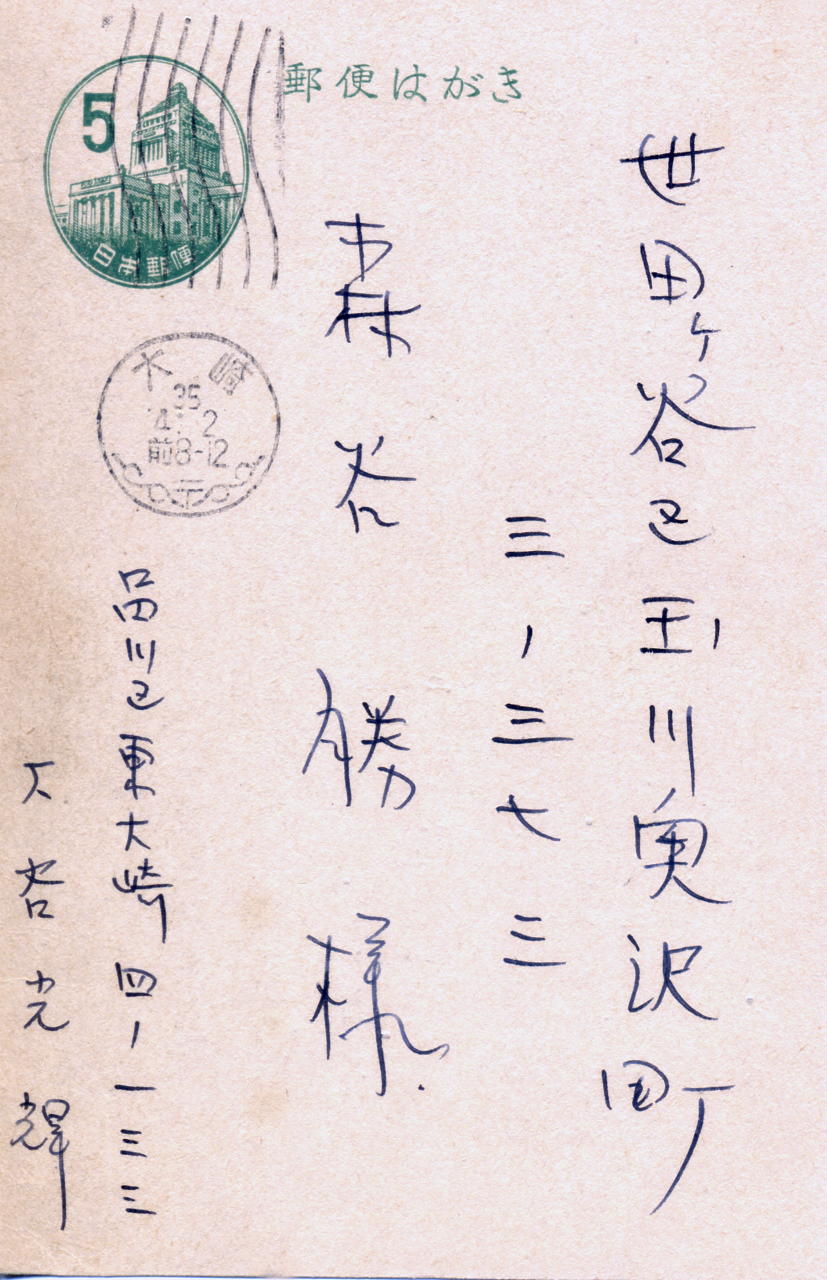 郵便はがき
5
日本郵便
大崎
35
4.-2
前8-12
世田ヶ谷区玉川奥沢町
三ノ三七三
森谷勝様
品川区東大崎四ノ一三三
大谷光輝